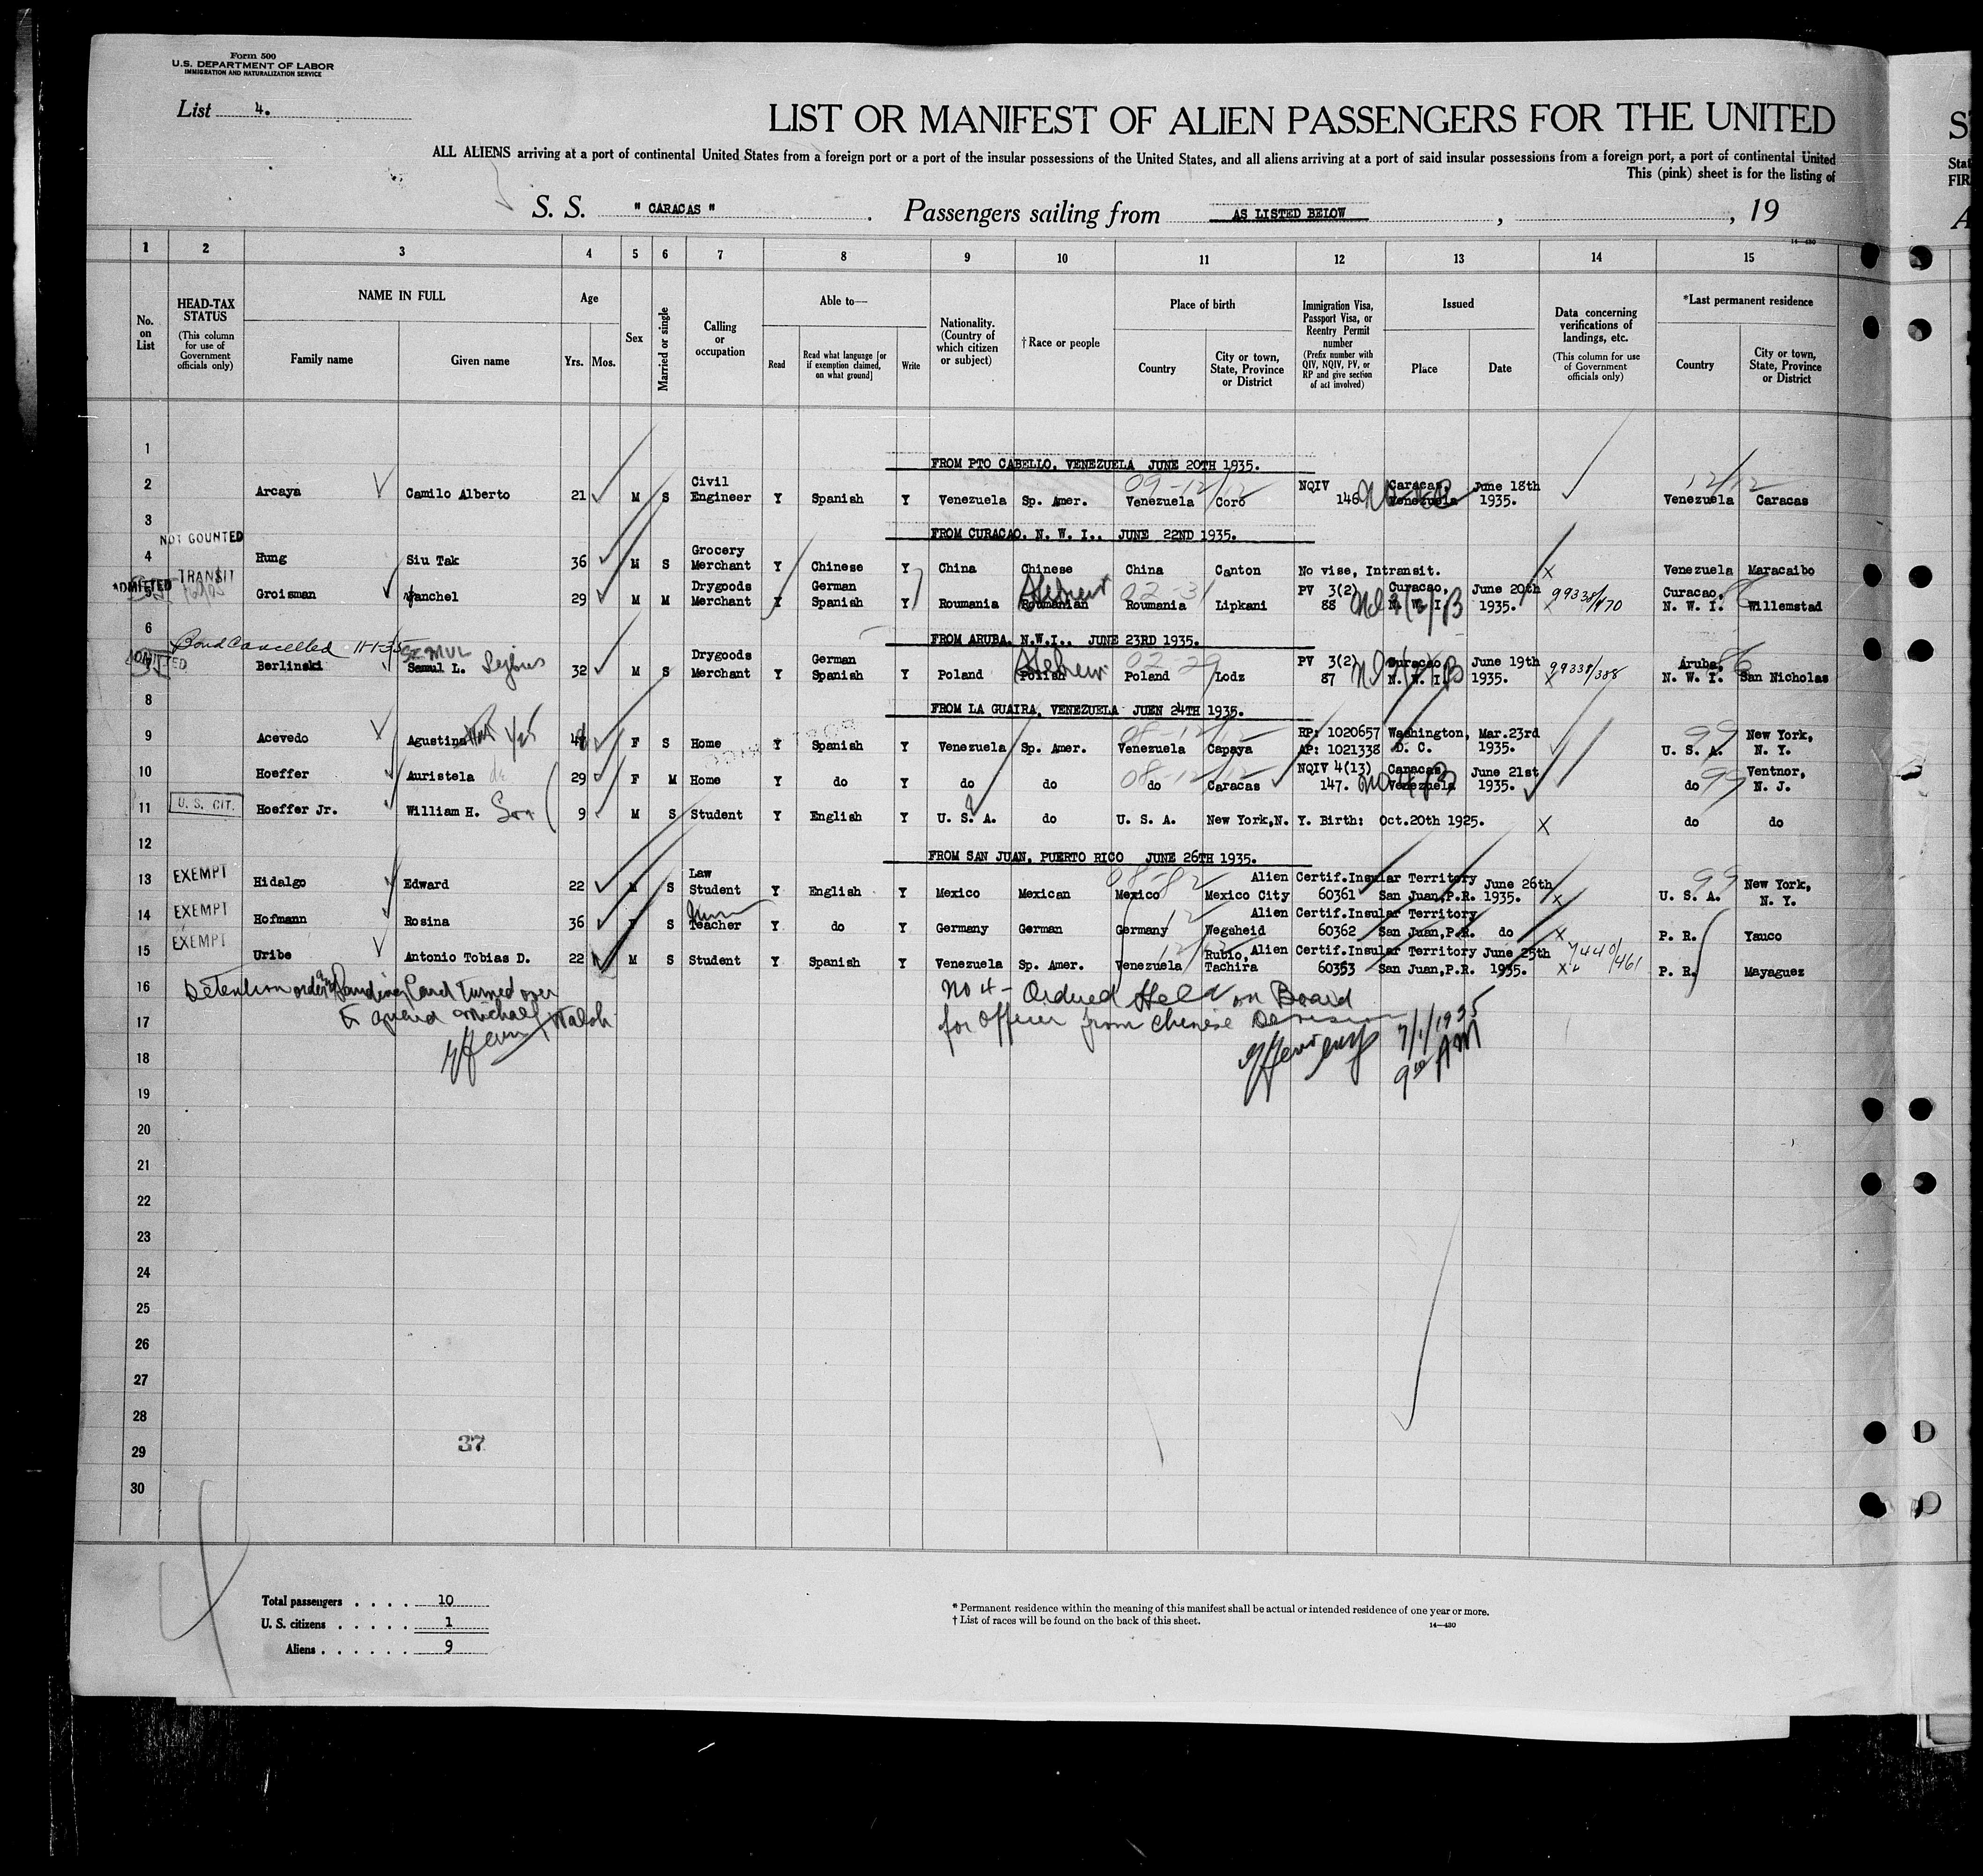 Form 500
U.S. DEPARTMENT OF LABOR
IMMIGRATION AND NATURALIZATION SERVICE
List 4.
LIST OR MANIFEST OF ALIEN PASSENGERS FOR THE UNITED
ALL ALIENS arriving at a port of continental United States from a foreign port or a port of the insular possessions of the United States, and all aliens arriving at a port of said insular possessions from a foreign port, a port of continental United
This (pink) sheet is for the listing of
S. S. " CARACAS " . Passengers sailing from AS LISTED BELOW , , 19
14—430
1 2 3 4 5 6 7 8 9 10 11 12 13 14 15
No. on List
HEAD-TAX STATUS (This column for use of Government officials only)
NAME IN FULL
Family name Given name
Age
Yrs. Mos.
Sex
Married or single
Calling or occupation
Able to—
Read Read what language [or if exemption claimed, on what ground] Write
Nationality. (Country of which citizen or subject)
†Race or people
Place of birth
Country City or town, State, Province or District
Immigration Visa, Passport Visa, or Reentry Permit number (Prefix number with QIV, NQIV, PV, or RP and give section of act involved)
Issued
Place Date
Data concerning verifications of landings, etc. (This column for use of Government officials only)
*Last permanent residence
Country City or town, State, Province or District
1 FROM PTO CABELLO, VENEZUELA JUNE 20TH 1935.
09-12/12 12/12
2 Arcaya Camilo Alberto 21 M S Civil Engineer Y Spanish Y Venezuela Sp. Amer. Venezuela Coro NQIV 146 Caracas, Venezuela June 18th 1935. Venezuela Caracas
3 FROM CURACAO, N. W. I., JUNE 22ND 1935.
NOT COUNTED
4 Hung Siu Tak 36 M S Grocery Merchant Y Chinese Y China Chinese China Canton No vise, Intransit. X Venezuela Maracaibo
TRANSIT
ADMITTED
5 Groisman Yanchel 29 M M Drygoods Merchant Y German Spanish Y Roumania Roumanian Hebrew Roumania 02-31 Lipkani PV 3(2) 88 Curacao, N. W. I. June 20th 1935. 99338/470 X Curacao, N. W. I. 86 Willemstad
6 FROM ARUBA, N.W.I., JUNE 23RD 1935.
Bond Cancelled 11-1-35
ADMITTED
SZMUL
7 Berlinski Samul L. Lejbus 32 M S Drygoods Merchant Y German Spanish Y Poland Polish Hebrew Poland 02-29 Lodz PV 3(2) 87 Curacao, N. W. I. June 19th 1935. 99338/388 X Aruba, N. W. I. 86 San Nicholas
8 FROM LA GUAIRA, VENEZUELA JUEN 24TH 1935.
9 Acevedo Agustina F S Home Y Spanish Y Venezuela Sp. Amer. Venezuela 08-12/12 Capaya RP: 1020657 AP: 1021338 Washington, D. C. Mar.23rd 1935. U. S. A. 99 New York, N. Y.
10 Hoeffer Auristela de 29 F M Home Y do Y do do do 08-12/12 Caracas NQIV 4(13) 147. Caracas, Venezuela June 21st 1935. do 99 Ventnor, N. J.
U. S. CIT.
11 Hoeffer Jr. William H. Son 9 M S Student Y English Y U. S. A. do U. S. A. New York,N. Y. Birth: Oct.20th 1925. X do do
12 FROM SAN JUAN, PUERTO RICO JUNE 26TH 1935.
EXEMPT
13 Hidalgo Edward 22 M S Law Student Y English Y Mexico Mexican Mexico 08-82 Mexico City Alien Certif.Insular Territory 60361 San Juan,P.R. June 26th 1935. X U. S. A. 99 New York, N. Y.
EXEMPT
14 Hofmann Rosina 36 F S Teacher Y do Y Germany German Germany Wegsheid Alien Certif.Insular Territory 60362 San Juan,P.R. do X P. R. Yauco
EXEMPT
15 Uribe Antonio Tobias D. 22 M S Student Y Spanish Y Venezuela Sp. Amer. Venezuela 12/12 Rubio, Tachira Alien Certif.Insular Territory 60353 San Juan,P.R. June 25th 1935. X 7440/461 P. R. Mayaguez
16 Detention order and Landing Card Turned over
to guard Michael Walsh
no 4 - Ordered Held on Board
17 for officer from Chinese Division
7/1/1935
9 AM
18
19
20
21
22
23
24
25
26
27
28
29
30
37
Total passengers . . . . 10
U. S. citizens . . . . . 1
Aliens . . . . . . 9
* Permanent residence within the meaning of this manifest shall be actual or intended residence of one year or more.
† List of races will be found on the back of this sheet.
14—430